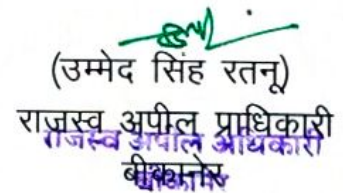 (उम्मेद सिंह रतनू)
राजस्व अपील प्राधिकारी
राजस्व अपील अधिकारी
बीकानेर